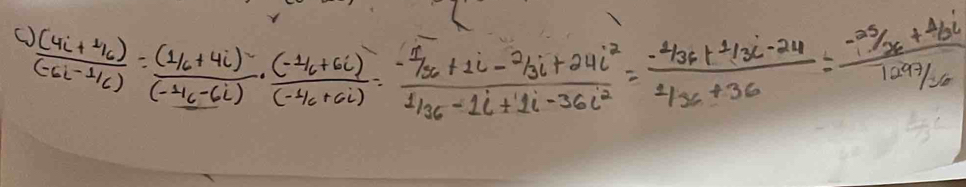 c) (4i + 1/6) / (-6i - 1/6) = (1/6 + 4i) / (-1/6 - 6i) · (-1/6 + 6i) / (-1/6 + 6i) = -1/36 + 1i - 2/3i + 24i² / 1/36 - 1i + 1i - 36i² = -1/36 + 1/3i - 24 / 1/36 + 36 = -25/36 + 1/3i / 1297/36